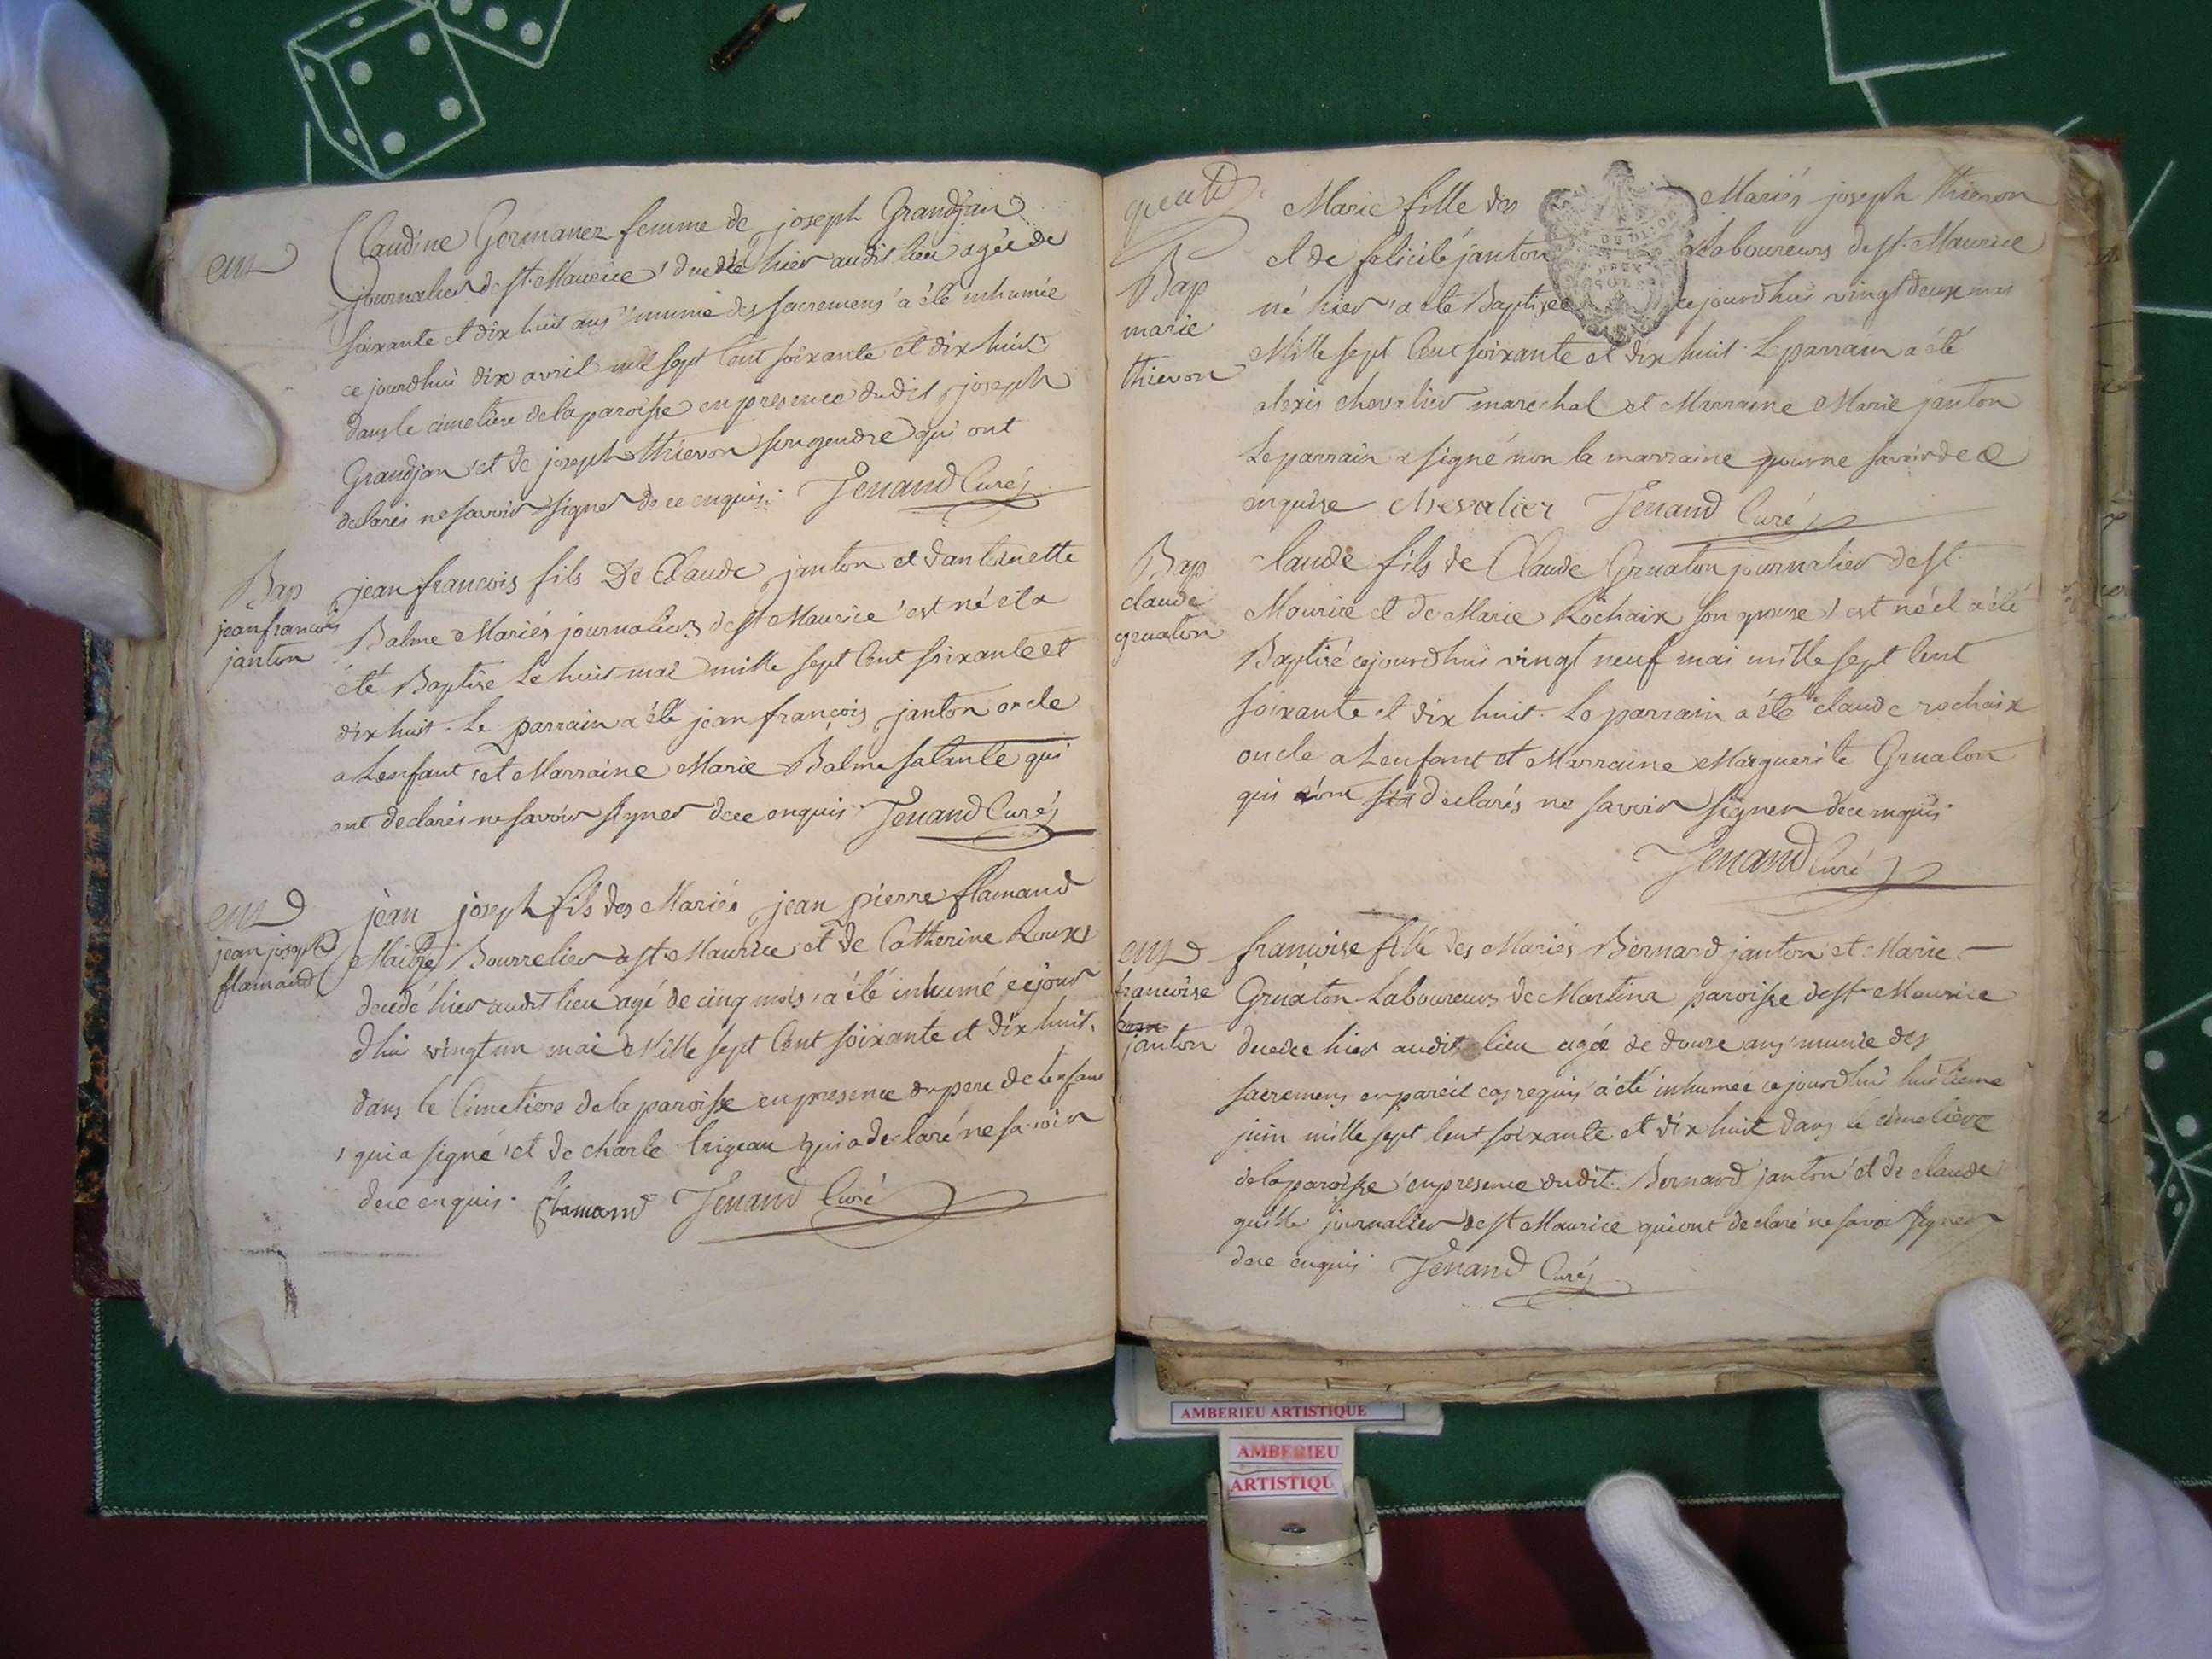 enz
Claudine Germanez femme de joseph Grandjan
journalier de st. Maurice decedée hier audit lieu agée de
soixante et dix huit ans munie des sacremens a été inhumée
ce jourdhui dix avril mil sept cent soixante et dix huit
dans le cimetiere de la paroisse en presence dudit joseph
Grandjan et de joseph thievon son gendre qui ont
declarés ne savoir signer de ce enquis. Jenand Curé
Bap
jean francois
janton
jean francois fils De Claude janton et dantoinette
Balme Mariés journaliers de st Maurice est né et a
été Baptisé le huit mai mille sept Cent soixante et
dix huit. Le parrain a été jean françois janton oncle
a Lenfant et Marraine Marie Balme sa tante qui
ont declarés ne savoir signer de ce enquis Jenand Curé
enz
jean joseph
flamand
jean joseph fils des Mariés jean pierre flamand
Maitre Bourrelier a st. Maurice et de Catherine Roux
decedé hier audit lieu agé de cinq mois a été inhumé ce jour
dhui vingt un mai Mille sept Cent soixante et dix huit.
dans le Cimetiere de la paroisse en presence du pere de Lenfant
qui a signé et de charle qui a declaré ne savoir
de ce enquis. flamand Jenand Curé
Bap
marie
thievon
Marie fille des Mariés joseph thievon
et de felicité janton Laboureurs de st. Maurice
né hier a été Baptisée ce jourdhui vingt deux mai
Mille sept Cent soixante et dix huit. Le parrain a été
alexis chevalier marechal et Marraine Marie janton
Le parrain a signé non la marraine pour ne savoir de ce
enquise chevalier Jenand Curé
Bap
claude
gruaton
Claude fils de Claude Gruaton journalier de st.
Maurice et de Marie Rochaix son epouse est né et a été
Baptisé ce jourdhui vingt neuf mai mille sept Cent
soixante et dix huit. Le parrain a été claude rochaix
oncle a Lenfant et Marraine Marguerite Gruaton
qui ont declarés ne savoir signer de ce enquis.
Jenand Curé
enz
francoise
janton
françoise fille des Mariés Bernard janton et Marie
Gruaton Laboureurs de Martina paroisse de st Maurice
decedée hier audit lieu agée de douze ans munie des
sacremens en pareil cas requis a été inhumée ce jourdhui huitieme
juin mille sept Cent soixante et dix huit dans le cimetiere
de la paroisse en presence dudit. Bernard janton et de claude
journalier de st Maurice qui ont declaré ne savoir signer
de ce enquis Jenand Curé
AMBERIEU ARTISTIQUE
AMBERIEU
ARTISTIQU